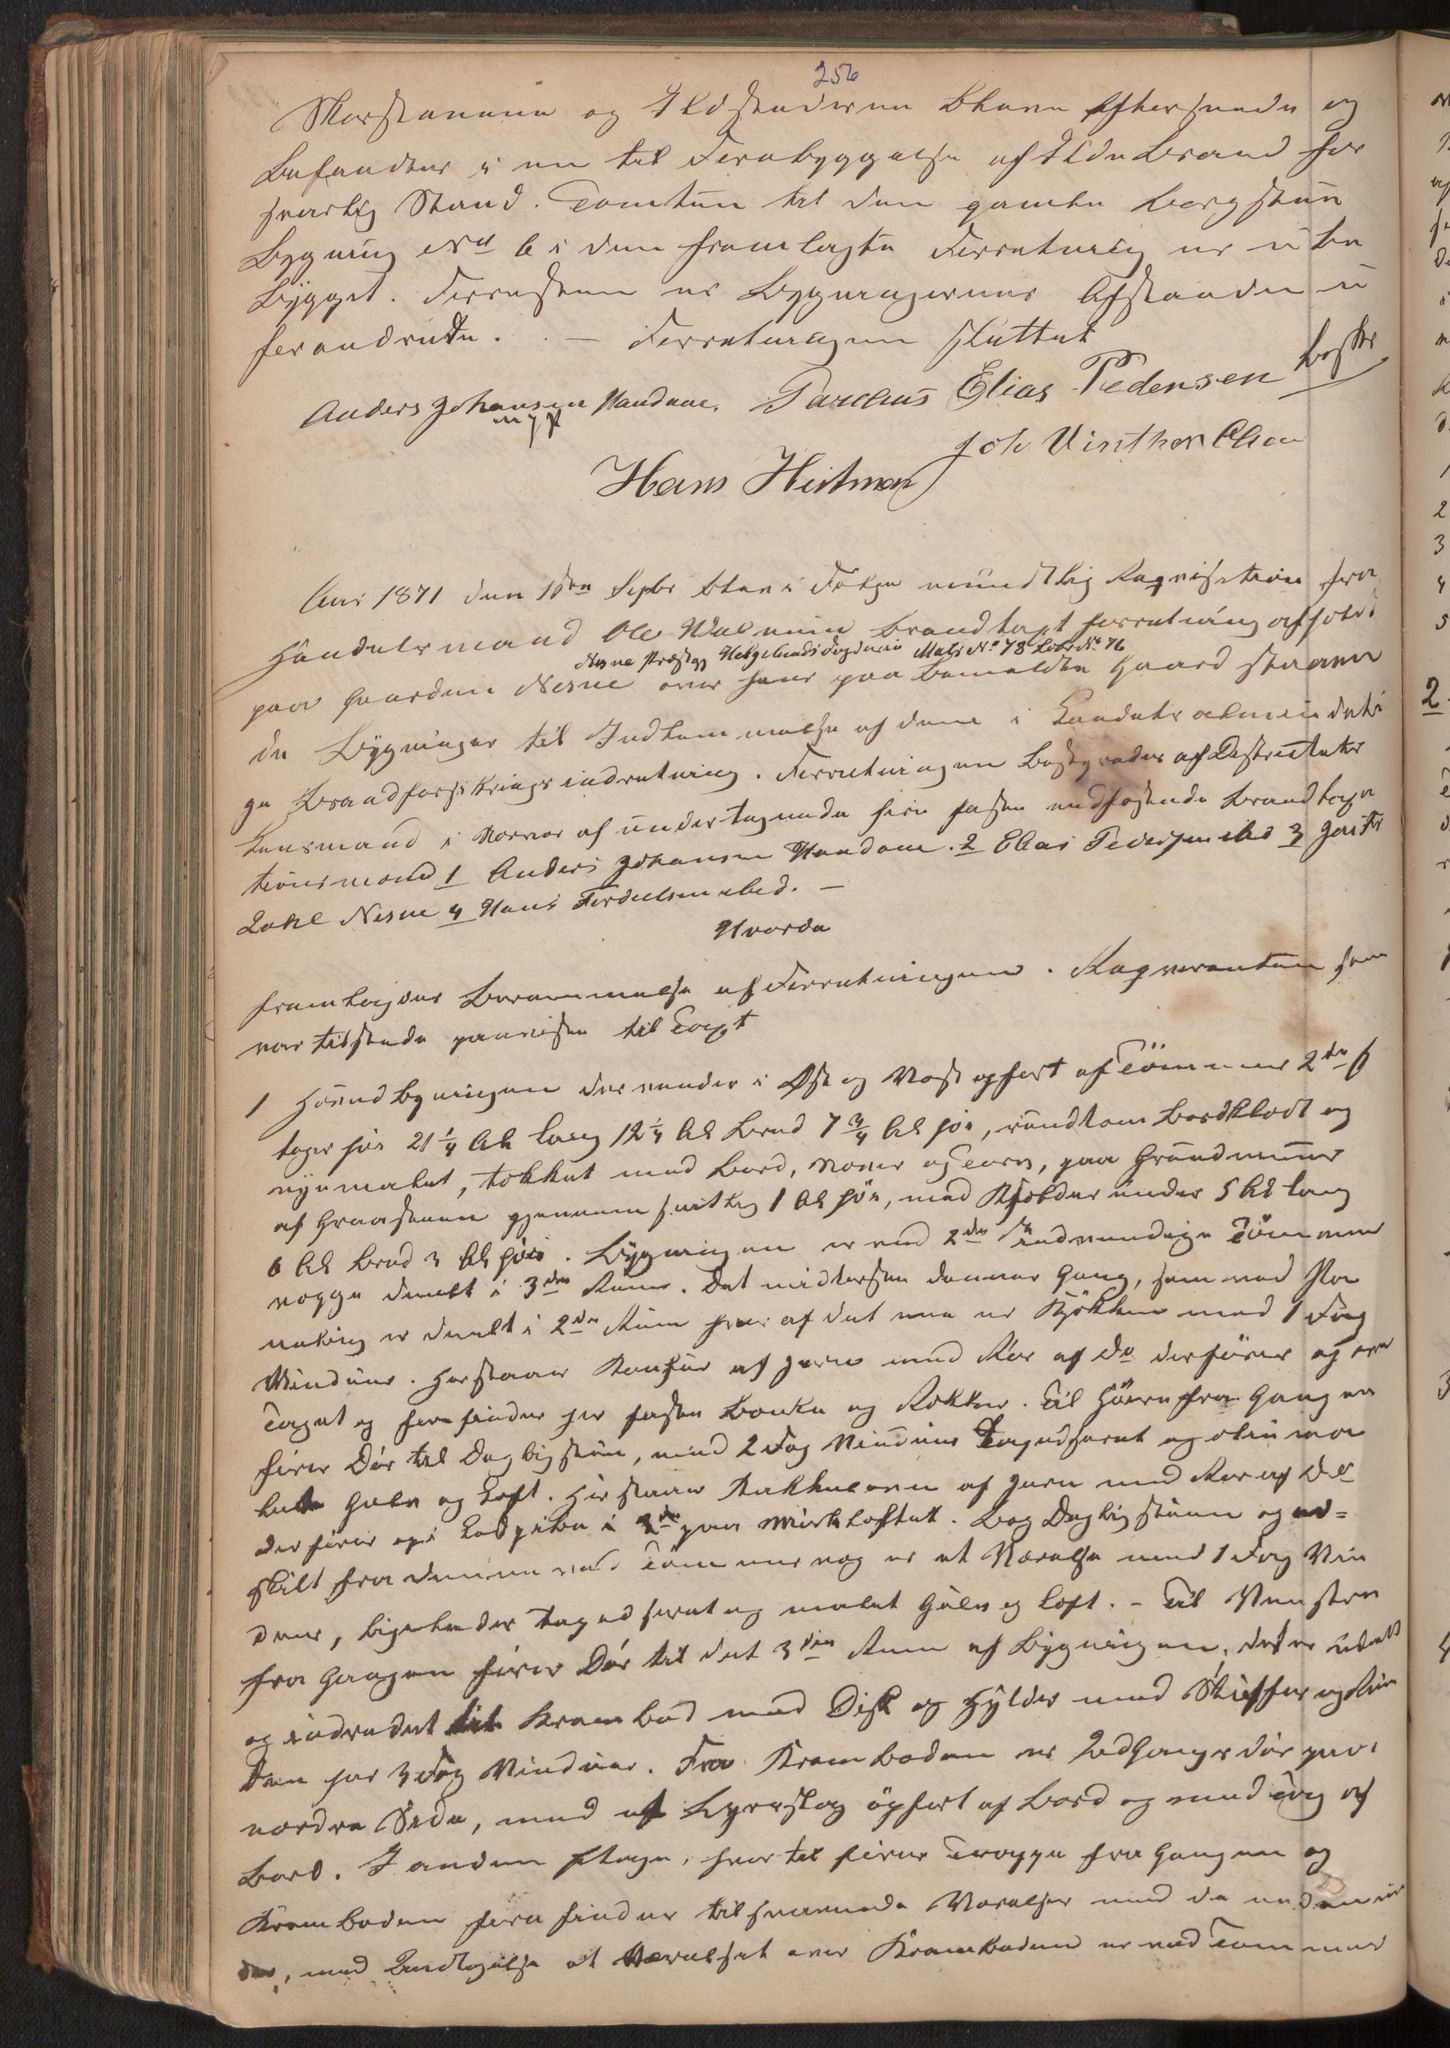 256
Skorstenene og Ildstederne bleve efterseede og
befandtes i en til Forebyggelse af Ildebrand for
svarlig Stand. Tomten til den gamle Borgstue
Bygning No 6 i den fremlagte Forretning er ube
bygget. Forresten er Bygningernes Afstande u
forandrede. — Forretningen sluttet
Anders Johansen Handnes. Elias Pedersen
m p P
Joh Vinther Olsen
Hans Heitman
Aar 1871 den Septbr blev i Følge mundtlig Requisition fra
Handelsmand Ole Walnum Brandtaxt forretning afholdt
Nesne Præstegj Helgelands Fogderie Matr No 78 Løbe No 76
paa Gaarden Nesne over hans paa bemeldte Gaard staaen
de Bygninger til Indlemmelse af dem i Landets almindeli
ge Brandforsikringsindretning. Forretningen bestyredes af Distriktets
Lensmand i Nærvær af undertegnede fire faste edfæstede Brandtaxa
tionsmænd 1 Anders Johansen Handnes. 2 Elias Pedersen ibd 3
Zahl Nesne 4 Hans ibed. —
Hvorda
fremlagdes Berammelse af Forretningen. Requirenten som
var tilstede paaviste til Taxt
1 Hovedbygningen der vender i Øst og Vest opført af Tømmer 2de E
tager høi 21 1/4 Al lang 12 1/4 Al bred 7 3/4 Al høi, rundtom bordklædt og
nymalet, tækket med Bord, Næver og Torv, paa Grundmuur
af Graasteen gjennemsnitlig 1 Al høi, med Kjelder under 5 Al lang
6 Al bred 3 Al høi. Bygningen er ved 2de indvendige Tømmer
vægge deelt i 3de Rum. Det midterste danner Gang, som ved Pa
neling er deelt i 2de Rum hvor af det ene er Kjøkken med 1 Fag
Vinduer. Her staar Komfur af Jern med Rør af do der fører op over
Taget og her findes her faste Bænke og Rækker. Til Høire fra Gangen
fører Dør til Dagligstuen, med 2 Fag Vinduer Tapetseret og olie ma
let Gulv og Loft. Her staar Kakkelovn af Jern med Rør af do
der fører op i paa Mørkloftet. Bag Dagligstuen og ad=
skilt fra denne ved Tømmervæg er et Værelse med 1 Fag Vin
duer, ligeledes tapetseret og malet Gulv og Loft. — Til Venstre
fra Gangen fører Dør til det 3die Rum af Bygningen, det er
og indredet til Krambod med Disk og Hylder med Skuffer og
Den har 3 Fag Vinduer. Fra Kramboden er Udgangsdør paa
nordre Side, med et Byslag opført af Bord og med Tag af
Bord. I anden Etage, hvor til fører Trappe fra Gangen og
Kramboden findes tilsvarende Værelser med de neden un
der, med Undtagelse at Værelset over Kramboden er ved Tømmer